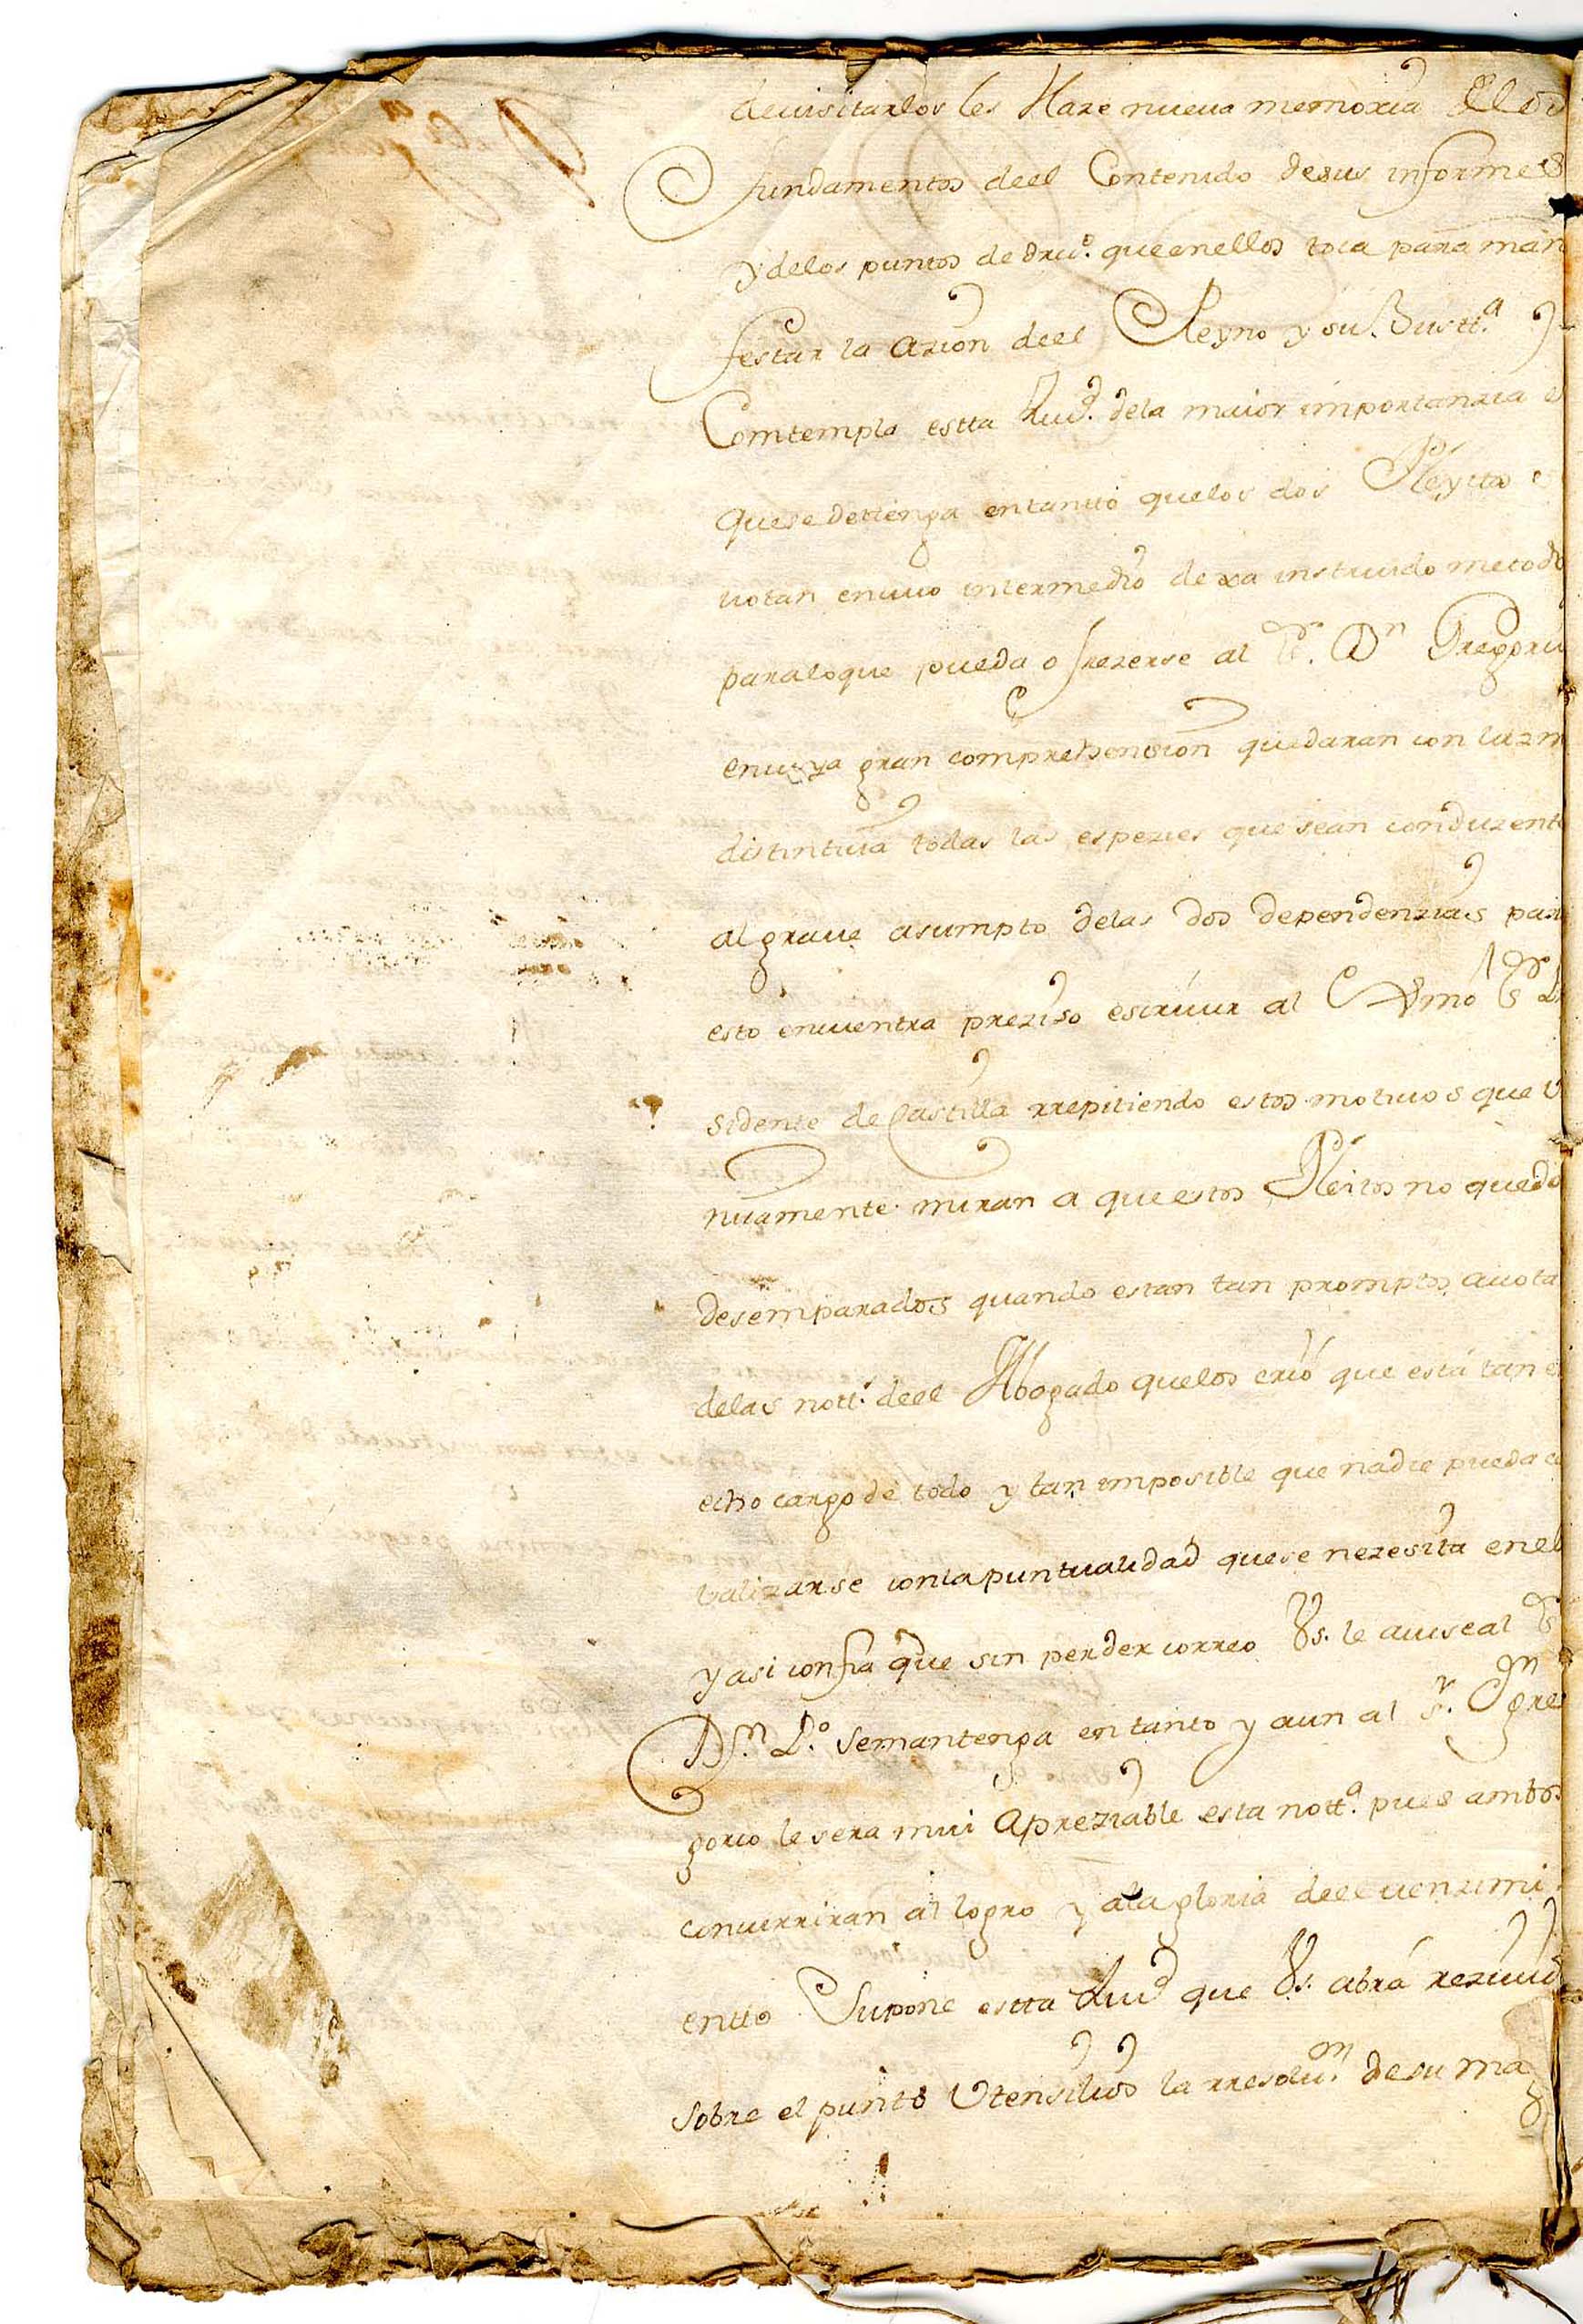 deuisitarlos les Haze nueua memoria
fundamentos deel Contenido desus informes
y delos puntos de dro. queenellos toca para man
festar la azion deel Reyno y su Justt.ª
Comtempla estta Ziud. dela maior importanzia
quese dettenga entanto quelos dos Pleytos
uotan cuiio intermedio dexa instruido
paraloque pueda ofrezerse al Sr. Dn Gregori
cuiya gran comprehension quedaran con
distintuia todas las espezies que sean conduzent
algraue asumpto delas dos dependenzias
esto encuentra preziso escriuir al
sidente de Castilla rrepitiendo estos motiuos que
nuamente miran a questos Pleitos no quede
desemparados quando estan tan promptos auota
delas nott.ˢ deel Abogado quelos crió que está tan
echo cargo de todo y tan imposible que nadie pueda
ualizarse conla puntualidad quese nezesita enel
y asi confia que sin perder correo Vs. le auise al
Dn. L.º semantenga en tanto y aun al Sr. Dn gre
gorio lesera mui Apreziable esta nott.ª pues ambos
concurriran al logro y ala gloria deel uenzimi
entto Supone estta Ziud que Vs. abrá reziuid
Sobre el punto Vtensilios la rresoluon. de su mag